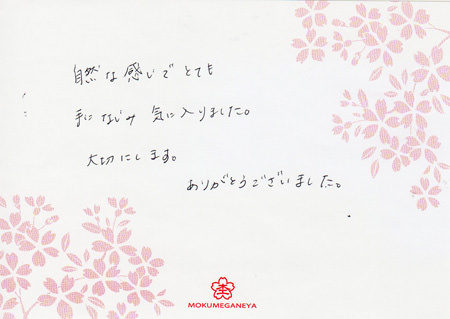 自然な感じでとても
手になじみ 気に入りました。
大切にします。
ありがとうございました。
MOKUMEGANEYA